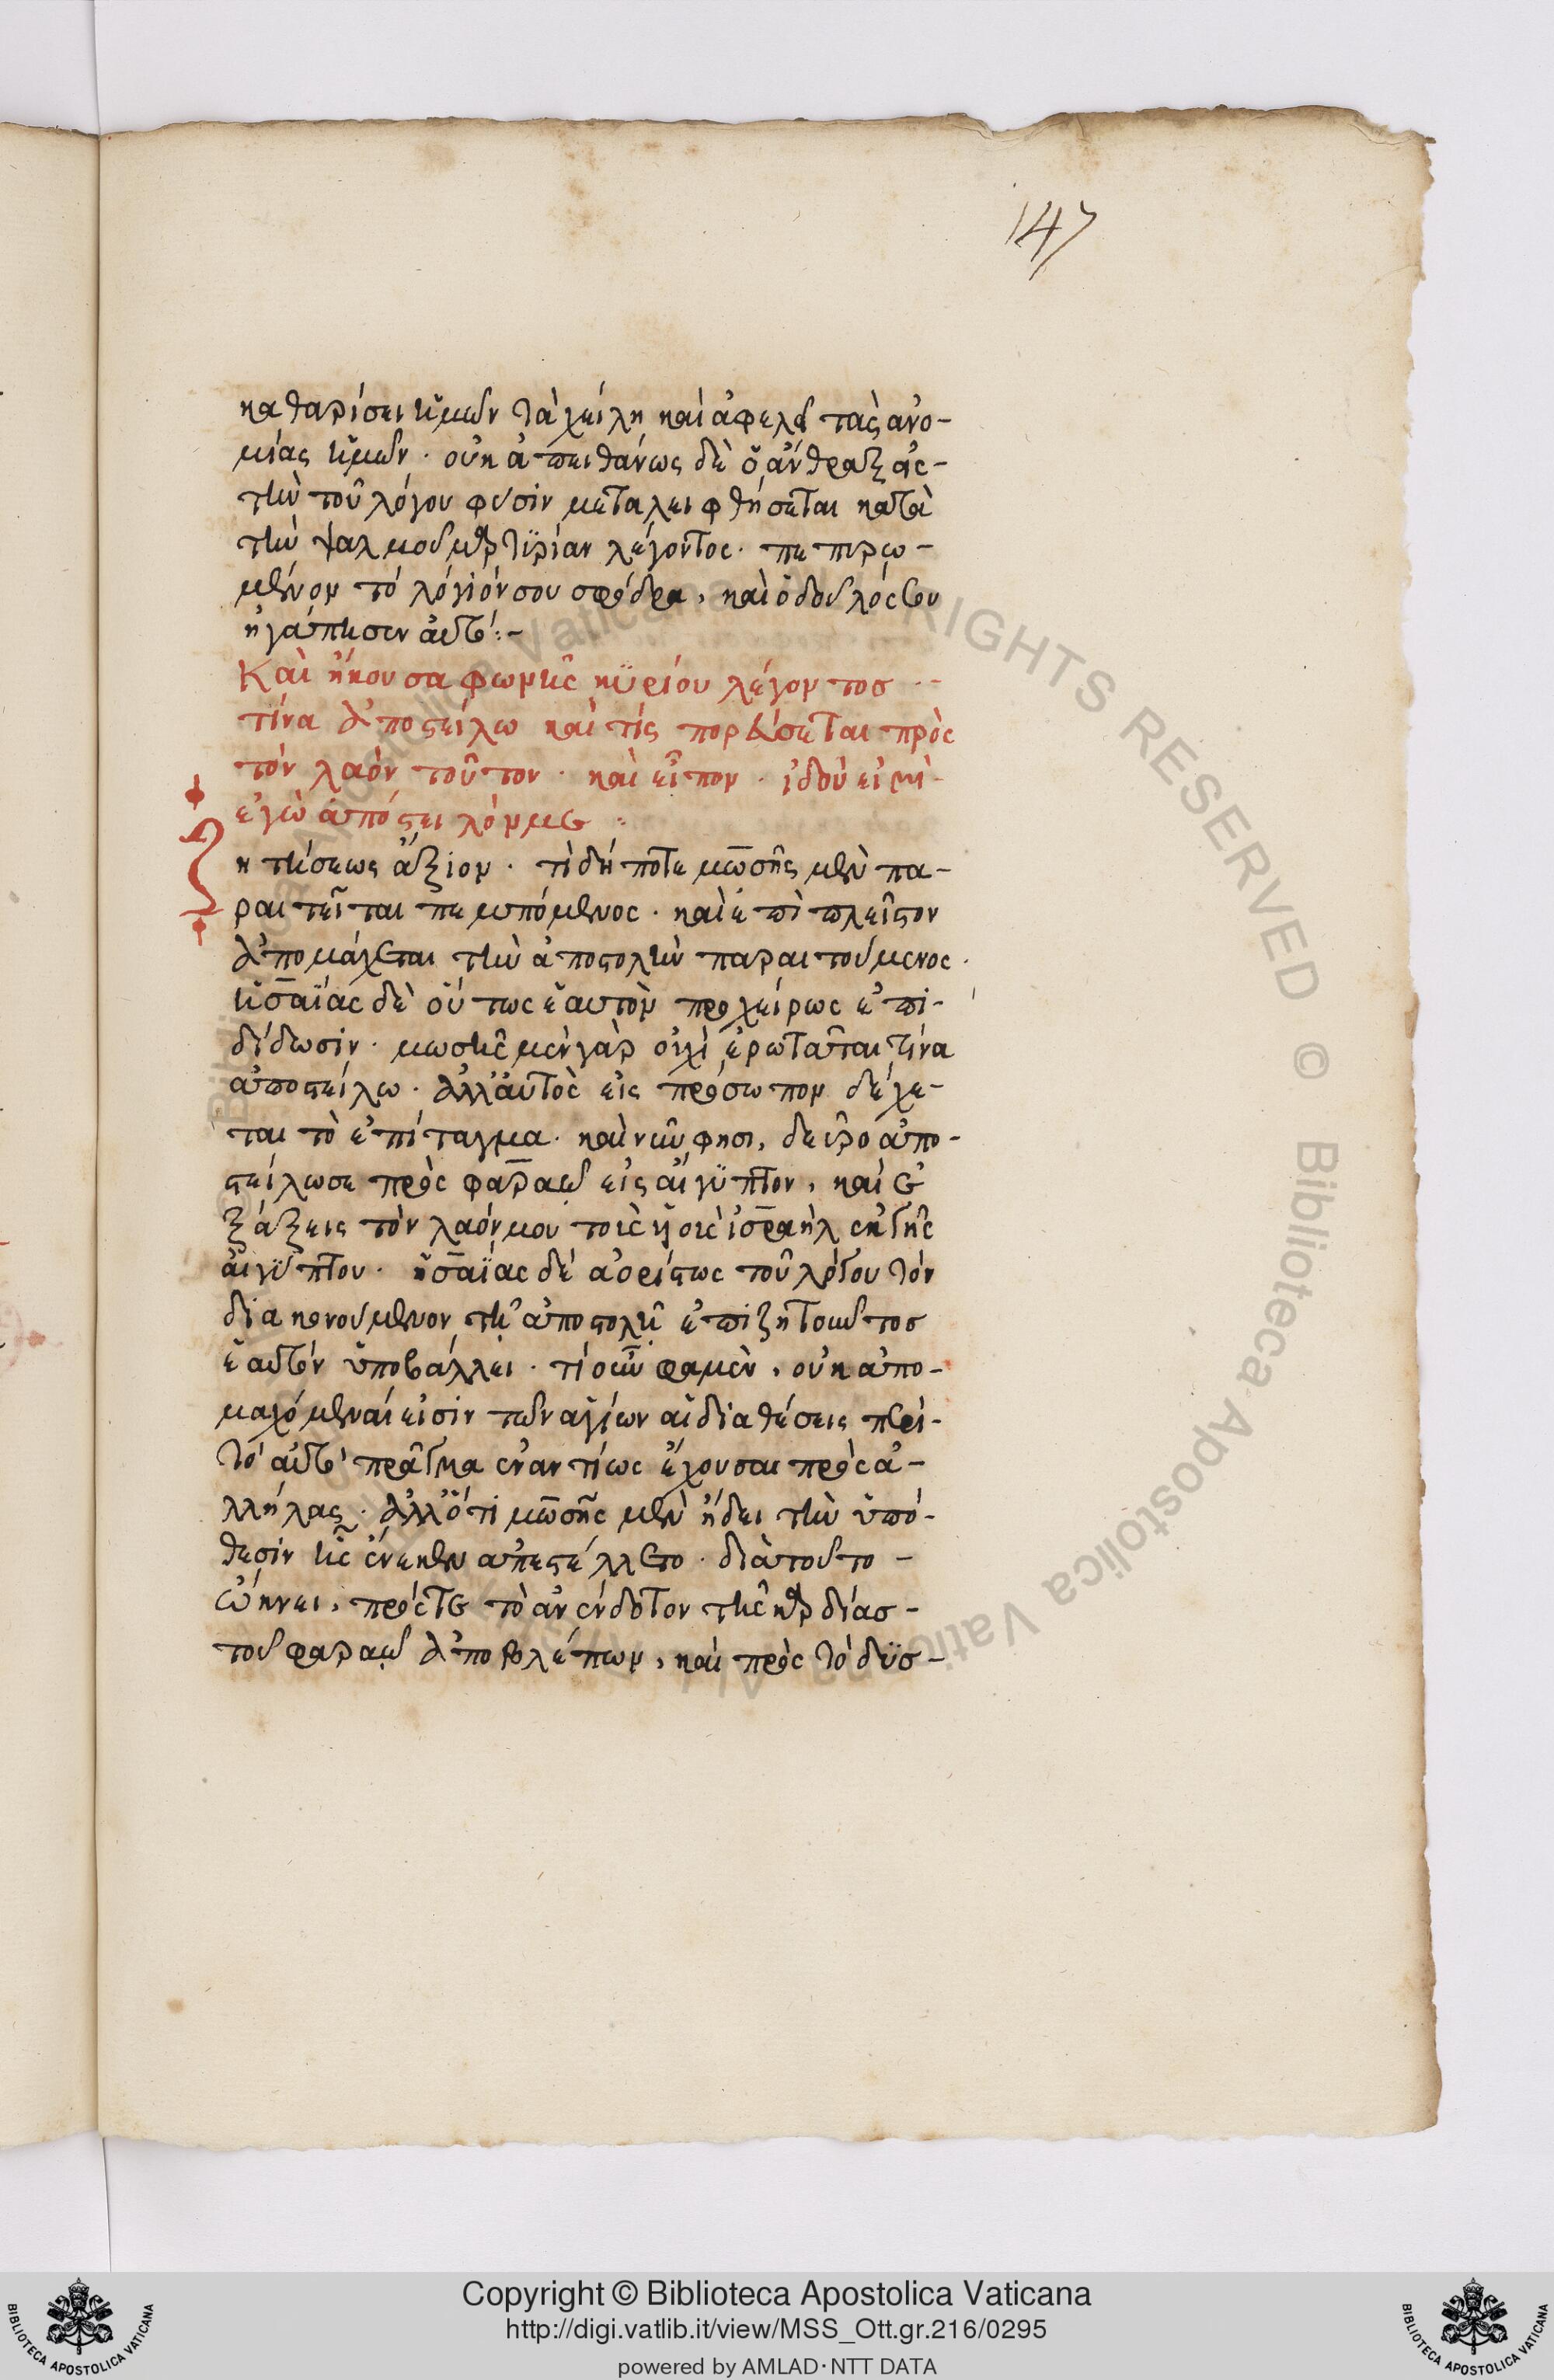 147
καθαρίσει ἡμῶν τὰ χείλη καὶ ἀφελεῖ τὰς ἀνο-
μίας ἡμῶν · οὐκ ἀπειθάνως δὲ ὁ ἄνθραξ εἰς -
τὴν τοῦ λόγου φύσιν μεταλειφθήσεται κατὰ
τὴν ψαλμοῦ μαρτυρίαν λέγοντος · πεπυρω -
μένον τό λόγιόν σου σφόδρα, καὶ ὁ δοῦλός σου
ἠγάπησεν αὐτό :-
Καὶ ἤκουσα φωνῆς κυρίου λέγοντοσ · -
τίνα ἀποστείλω καὶ τίς πορεύσεται πρὸς
τὸν λαὸν τοῦτον · καὶ εἶπον · ἰδοὺ εἰμὶ -
ἐγὼ ἀπόστειλόν με :
Ζητήσεως ἄξιον · τὶ δήποτε μωσῆς μὲν πα -
ραιτεῖται πεμπόμενος · καὶ ἐπὶ πλεῖστον
ἀπομάχεται τὴν ἀποστολὴν παραιτούμενος ·
ἡσαΐας δὲ οὕτως ἑαυτὸν προχείρως ἐπι -
δίδωσιν · μωσῆς μὲν γὰρ οὐχὶ ἐρωτᾶται τίνα
ἀποστείλω · ἀλλ' αὐτὸς εἰς πρόσωπον δέχε -
ται τὸ ἐπίταγμα · καὶ νῦν φησι, δεῦρο ἀπο -
στείλω σε πρὸς φαραὼ εἰς αἴγυπτον, καὶ ἐ
ξάξεις τὸν λαόν μου τοὺς υἱοὺς ἰσραὴλ ἐκ γῆς
αἰγύπτου · ἡσαΐας δέ ἀορίστως τοῦ λόγου τὸν
διακονούμενον τῇ ἀποστολῇ ἐπιζητοῦντοσ
ἑαυτόν ὑποβάλλει · τί οὖν φαμὲν, οὐκ ἀπο -
μαχόμεναί εἰσίν τῶν ἁγίων αἱ διαθέσεις περὶ -
τό αὐτό πρᾶγμα ἐναντίως ἔχουσαι πρὸς ἀ -
λλήλας · ἀλλ' ὅτι μωσῆς μὲν ᾔδει τὴν ὑπό -
θεσίν ἧς ἕνεκεν ἀπεστέλλετο · διὰ τοῦτο -
ὤκνει, πρός τε τὸ ἀνένδοτον τῆς καρδίασ -
τοῦ φαραὼ ἀποβλέπων, καὶ πρὸς τὸ δυσ -
Copyright © Biblioteca Apostolica Vaticana
http://digi.vatlib.it/view/MSS_Ott.gr.216/0295
powered by AMLAD·NTT DATA